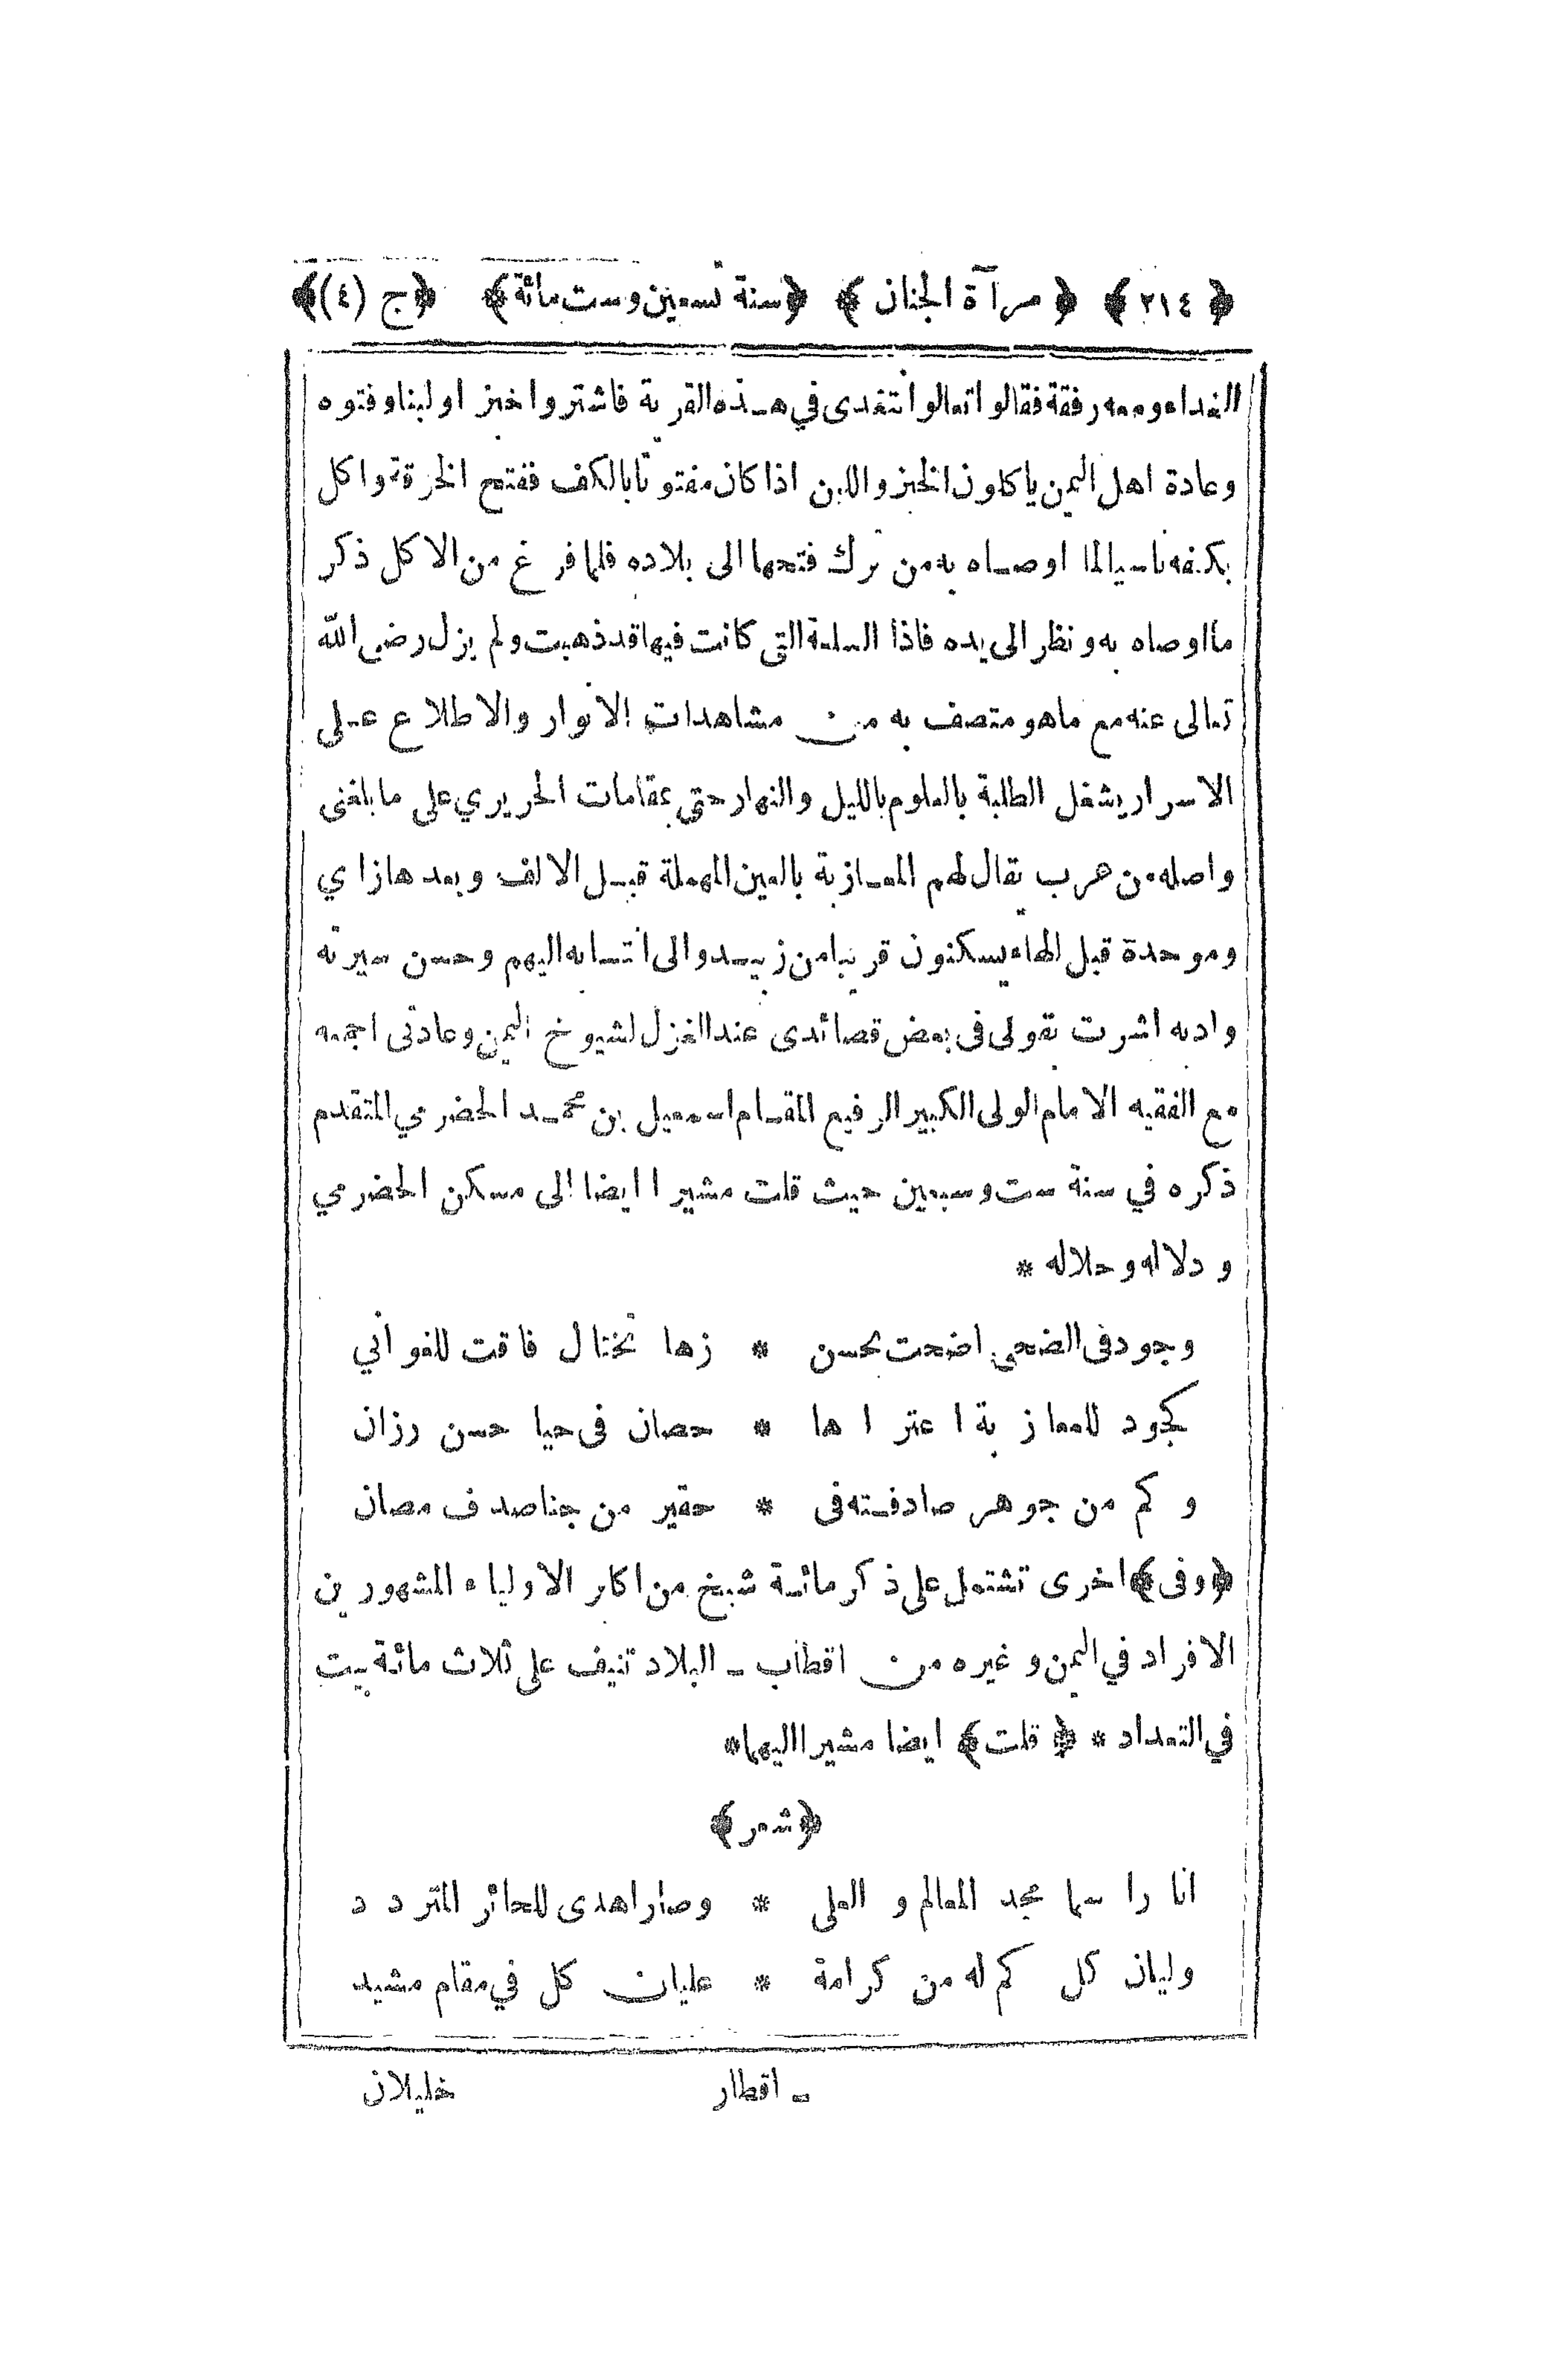 ﴿ ٢١٤ ﴾ ﴿ مرآة الجنان ﴾ ﴿سنة تسعين وست مائة﴾ ﴿ج (٤)﴾
الغداء ومعه رفقة فقالوا تعالوا نتغدى في هذه القرية فاشتروا خبزا ولبنا وفتوه
وعادة اهل اليمن ياكلون الخبز واللبن اذا كان مفتوتا بالكف ففتح الخرقة واكل
بكفه ناسيا لما اوصاه به من ترك فتحها الى بلاده فلما فرغ من الاكل ذكر
ما اوصاه به ونظر الى يده فاذا السلعة التى كانت فيها قد ذهبت ولم يزل رضي الله
تعالى عنه مع ما هو متصف به من مشاهدات الانوار والاطلاع على
الاسرار يشغل الطلبة بالعلوم بالليل والنهار حتى بمقامات الحريري على ما بلغنى
واصله من عرب يقال لهم المعازبة بالعين المهملة قبل الالف وبعدها زاي
وموحدة قبل الهاء يسكنون قريبا من زبيد والى انتسابه اليهم وحسن سيرته
وادبه اشرت بقولى فى بعض قصائدى عند الغزل لشيوخ اليمن وعادتى اجمعه
مع الفقيه الامام الولى الكبير الرفيع المقام اسمعيل بن محمد الحضرمي المتقدم
ذكره في سنة ست وسبعين حيث قلت مشيرا ايضا الى مسكن الحضرمي
ودلاله وحلاله *
وجود فى الضحى اضحت بحسن * زها تختال فاقت للغواني
كجود للمعازبة اعتراها * حصان فى حيا حسن رزان
وكم من جوهر صادفته فى * حقير من جنا صدف مصان
﴿وفى﴾ اخرى تشتمل على ذكر مائة شيخ من اكابر الاولياء المشهورين
الافراد في اليمن وغيره من اقطاب - البلاد تنيف على ثلاث مائة بيت
في التعداد * ﴿ قلت﴾ ايضا مشيرا اليهما*
﴿شعر﴾
انا را سما مجد المعالم و العلى * وصارا هدى للحائر المتردد
وليان كل كم له من كرامة * عليان كل في مقام مشيد
- اقطار خليلان